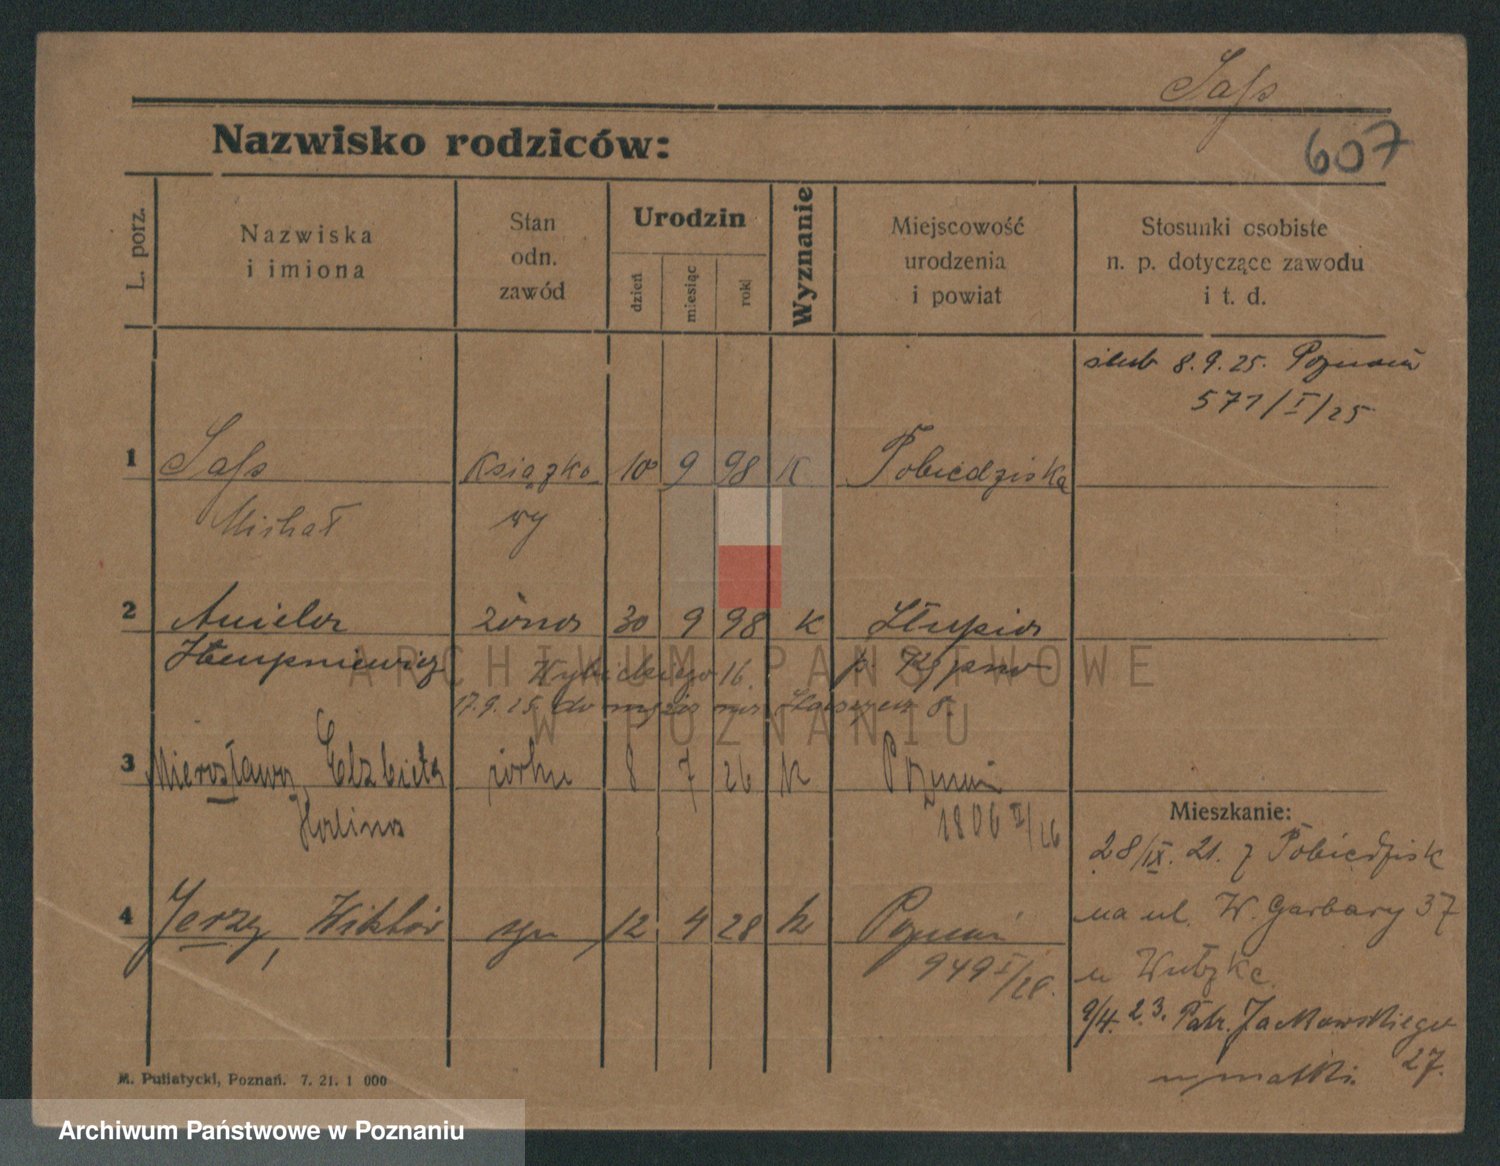 Safs
607
Nazwisko rodziców:
L. porz.
Nazwiska i imiona
Stan odn. zawód
Urodzin
dzień
miesiąc
rok
Wyznanie
Miejscowość urodzenia i powiat
Stosunki osobiste n. p. dotyczące zawodu i t. d.
ślub 8.9.25. Poznań
571/I/25
1 Safs Książko 10 9 98 K Pobiedziska
Michał wy
2 Aniela żona 30 9 98 K Słupia
Słupniewicz p. Kępno
Wybickiego 16.
17.9.25. do męża
3 Mirosława, Elżbieta córka 8 7 26 k Poznań
Halina 1806 I/26
Mieszkanie:
28/IX. 21. z Pobiedzisk
4 Jerzy, Wiktór syn 12 4 28 k Poznań
na ul. W. Garbary 37
949 I/28.
u
9/4. 23. Patr. Jackowskiego
27.
u matki.
M. Putiatycki, Poznań. 7. 21. 1 000
ARCHIWUM PAŃSTWOWE
W POZNANIU
Archiwum Państwowe w Poznaniu